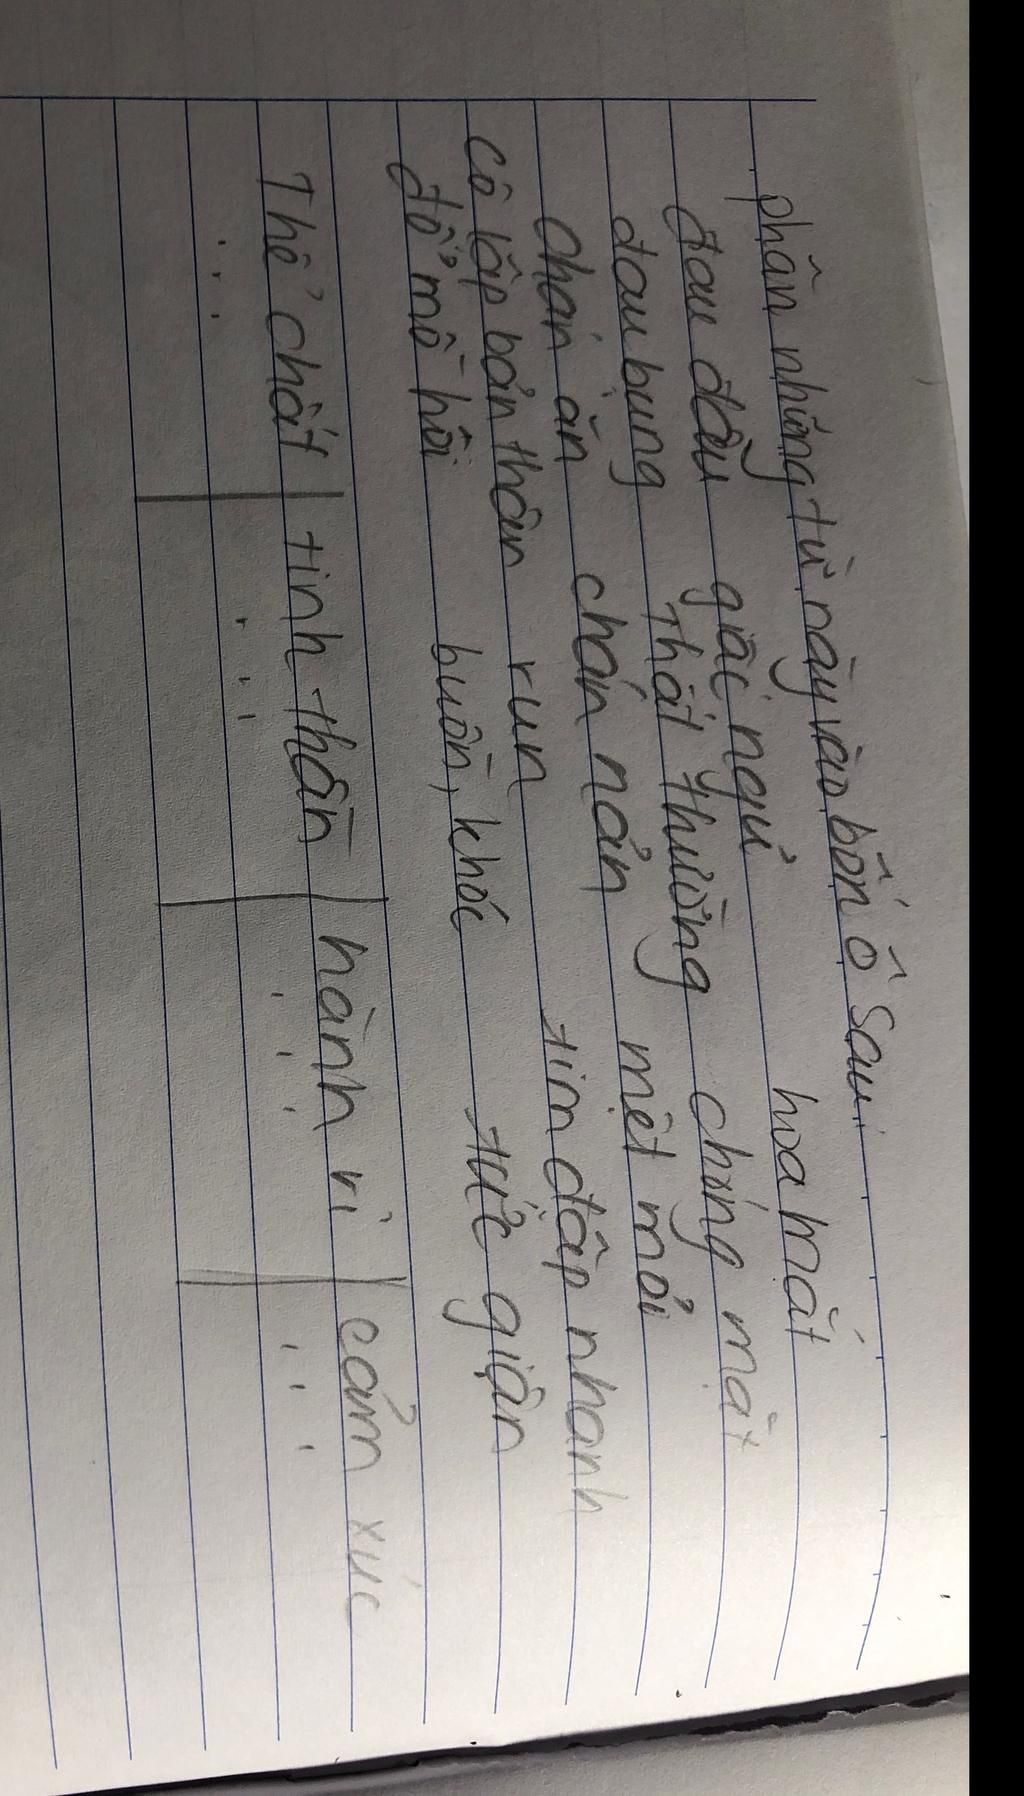 phân những từ này vào bốn ô sau:
đau đầu giấc ngủ hoa mắt
đau bụng thất thường chóng mặt
chán ăn chán nản mệt mỏi
cô lập bản thân run tim đập nhanh
đổ mồ hôi buồn, khóc tức giận
Thể chất tinh thần hành vi cảm xúc